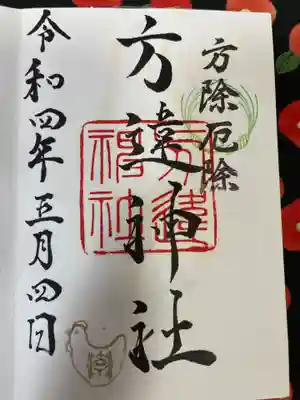 方除厄除
方違神社
方違
神社
令和四年三月四日